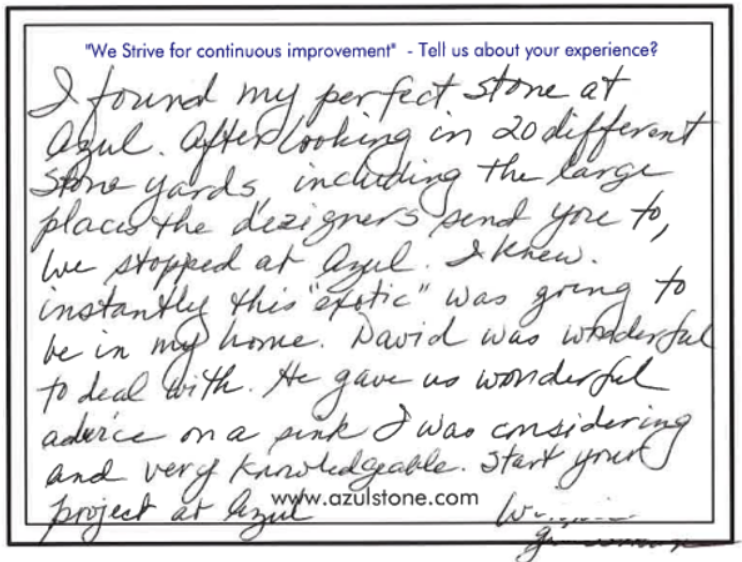 "We Strive for continuous improvement" - Tell us about your experience?
I found my perfect stone at
Azul. After looking in 20 different
Stone yards, including the large
places the dezigners send you to,
we stopped at Azul. I knew.
instantly this "exotic" was going to
be in my home. David was wonderful
to deal with. He gave us wonderful
advice on a sink I was considering
and very knowledgeable. Start your
project at Azul
www.azulstone.com